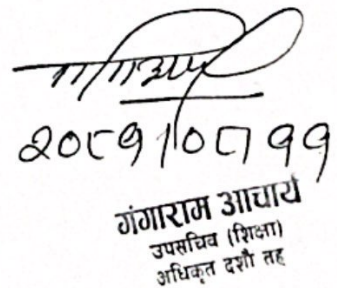 २०८१।०८।११
गंगाराम आचार्य
उपसचिव (शिक्षा)
अधिकृत दशौ तह